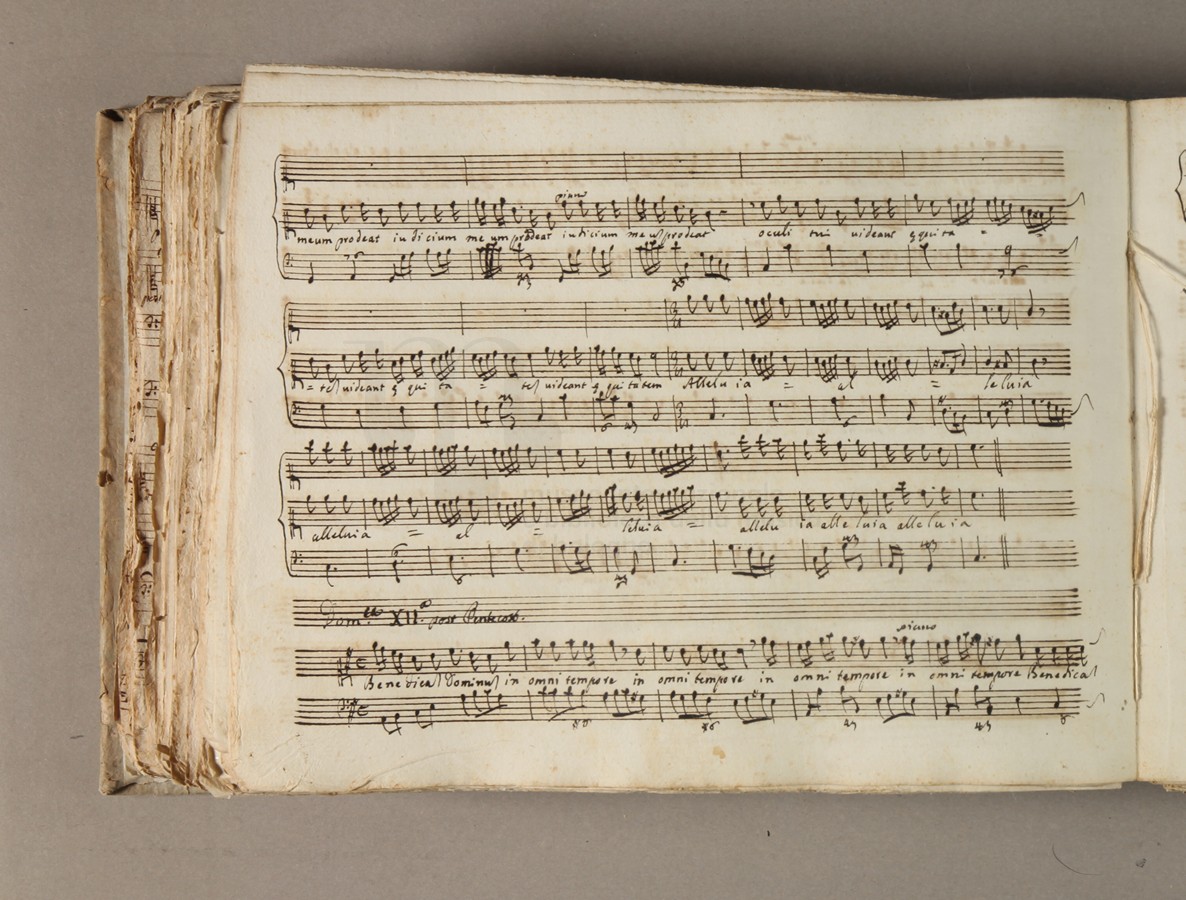 piano
meum prodeat in dicium me um prodeat indicium meu prodeat oculi tui uideant ęquita =
= te uideant ę qui ta = te uideant ę qui tatem Allelu ia = al = leluia
alleluia = al = leluia = allelu ia alle luia alle lu ia
Dom.ca XII.a post Pentecost.
piano
Benedica Dominu in omni tempore in omni tempore in omni tempore in omni tempore Benedica